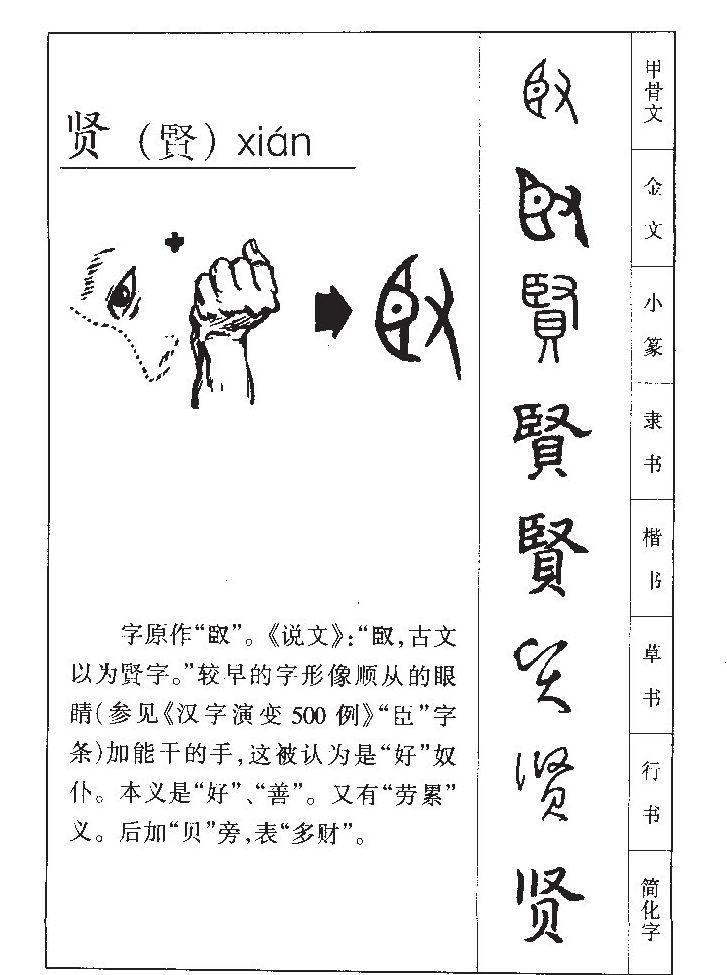 贤（賢）xián
字原作“臤”。《说文》：“臤，古文
以为賢字。”较早的字形像顺从的眼
睛（参见《汉字演变500例》“臣”字
条）加能干的手，这被认为是“好”奴
仆。本义是“好”、“善”。又有“劳累”
义。后加“贝”旁，表“多财”。
臤
臤
臤
賢
賢
賢
贤
贤
贤
甲骨文
金文
小篆
隶书
楷书
草书
行书
简化字